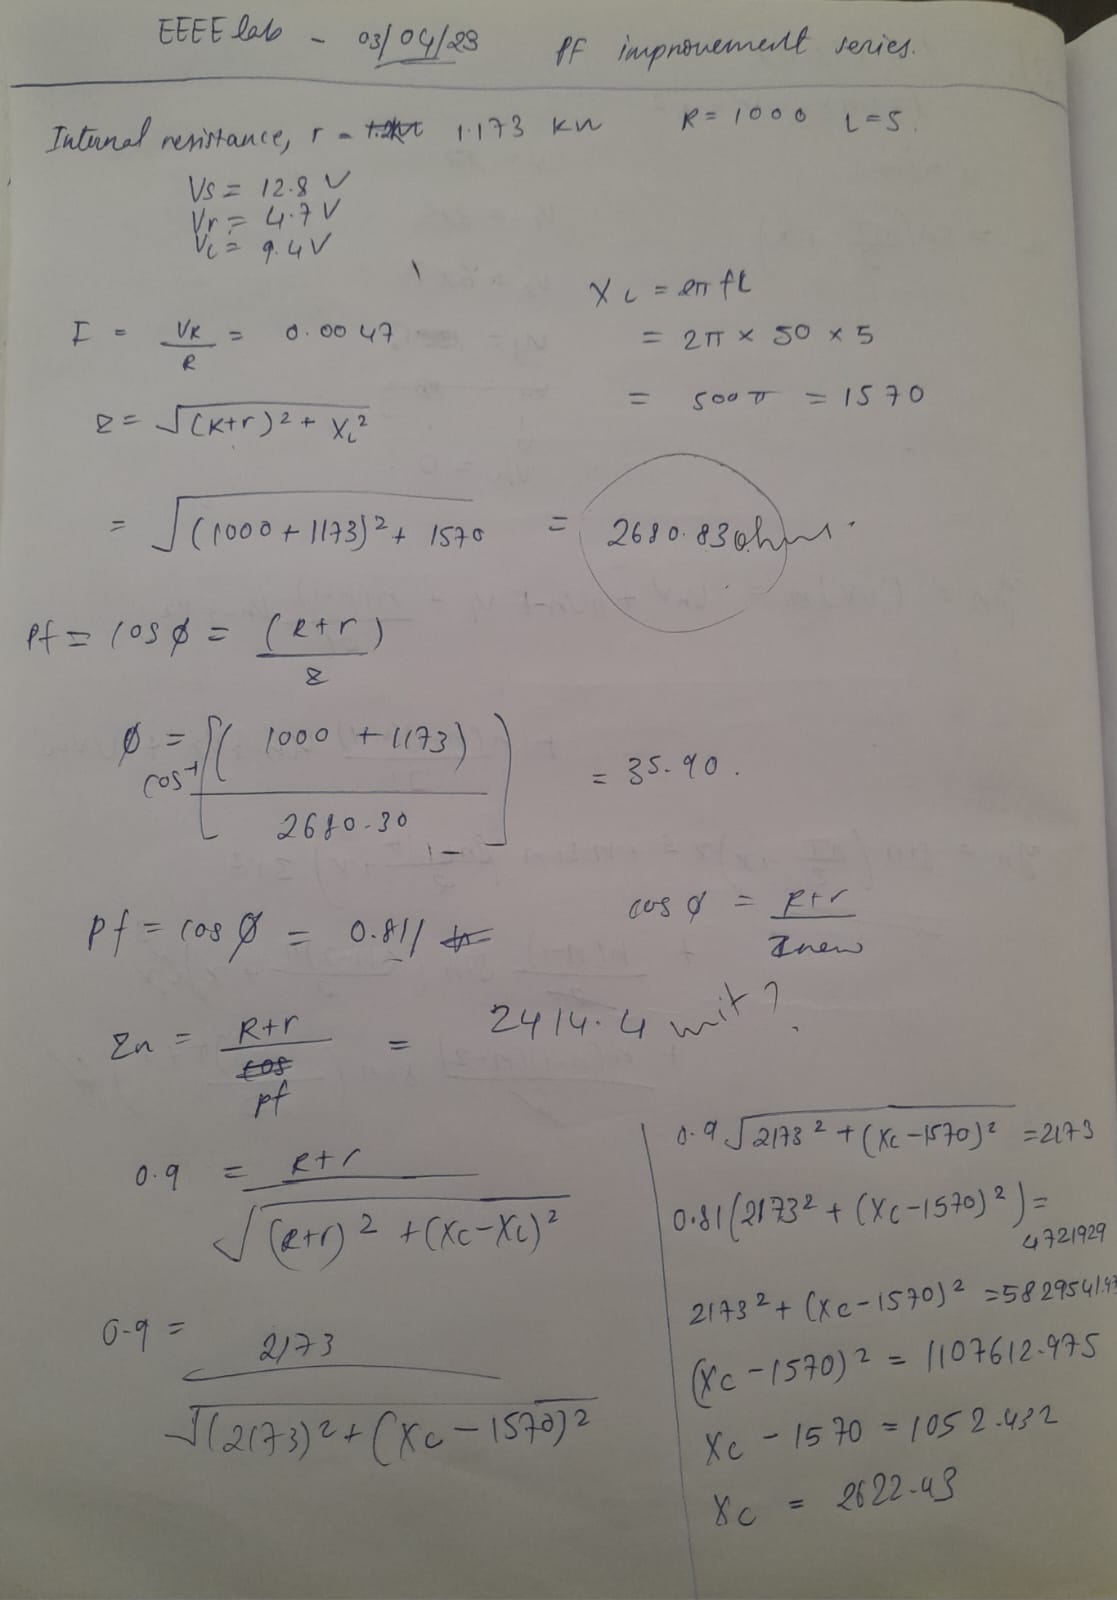 EEEE lab - 03/04/23 Pf improvement series.
Internal resistance, r = 1.173 kΩ R = 1000 L = 5.
Vs = 12.8 V
Vr = 4.7 V
VL = 9.4 V
I = VR/R = 0.0047
XL = 2π fL
= 2π × 50 × 5
= 500 π = 1570
Z = √((R+r)² + XL²)
= √((1000 + 1173)² + 1570) = 2680.83 ohms.
Pf = cos φ = (R+r)/Z
φ = cos⁻¹[(1000 + 1173)/2680.30] = 35.90.
Pf = cos φ = 0.811
cos φ = R+r/Znew
Zn = R+r/pf = 2414.4 unit?
0.9 = R+r/√((R+r)² + (Xc-XL)²)
0.9 = 2173/√((2173)² + (Xc - 1570)²)
0.9 √(2173² + (Xc - 1570)²) = 2173
0.81(2173² + (Xc - 1570)²) = 4721929
2173² + (Xc - 1570)² = 5829541.97
(Xc - 1570)² = 1107612.975
Xc - 1570 = 1052.432
Xc = 2622.43